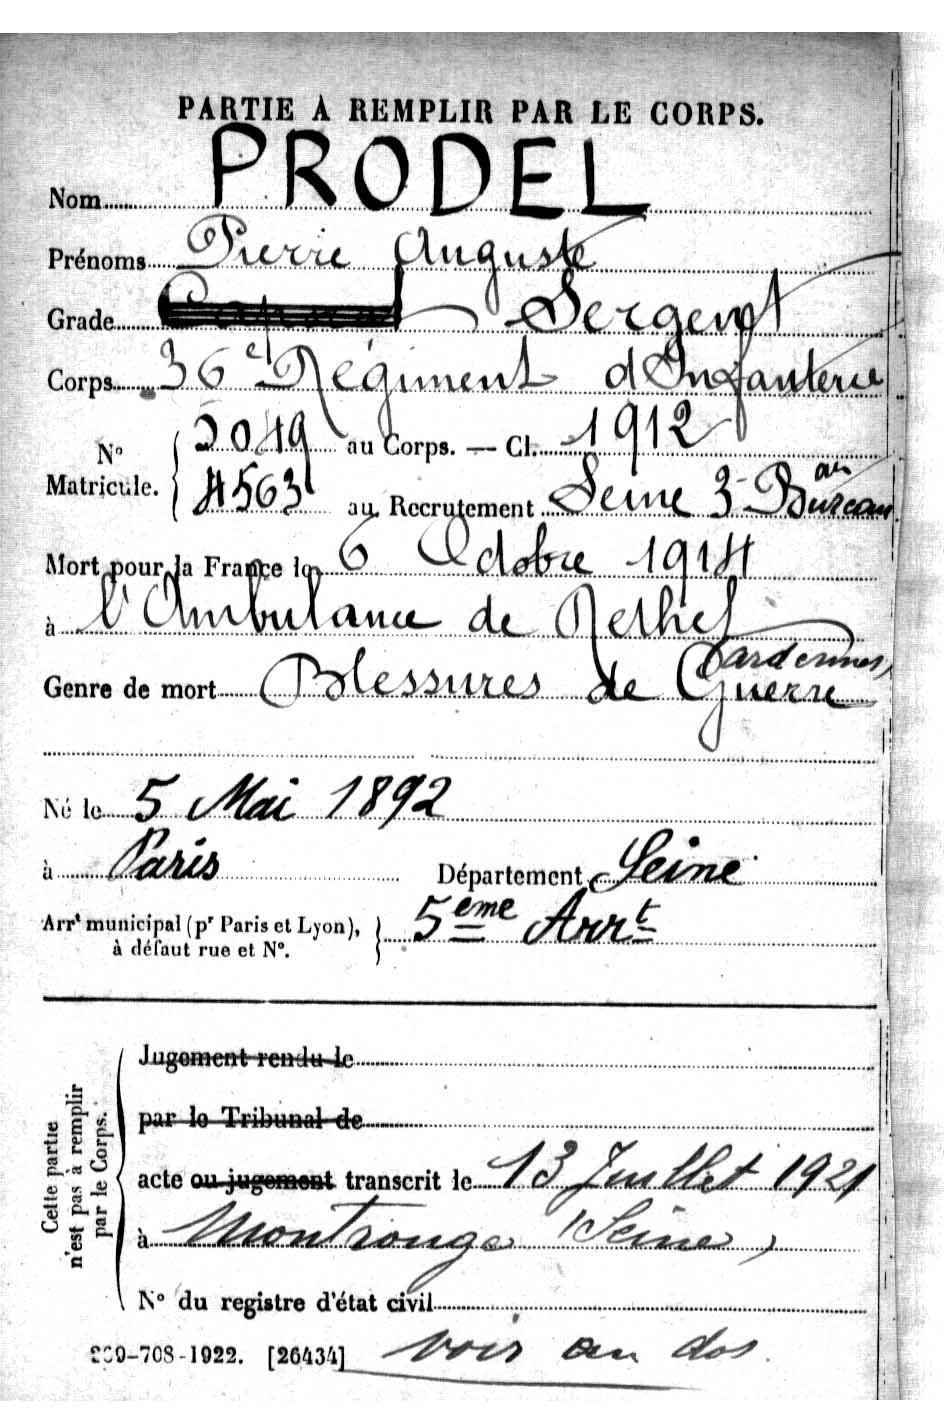 PARTIE À REMPLIR PAR LE CORPS.
Nom PRODEL
Prénoms Pierre Auguste
Grade Caporal Sergent
Corps 36e Régiment d'Infanterie
No Matricule. { 2049 au Corps. — Cl. 1912
4563 au Recrutement Seine 3e Bureau
au
Mort pour la France le 6 Octobre 1914
à l'Ambulance de Rethel
(ardennes)
Genre de mort Blessures de Guerre
Né le 5 Mai 1892
à Paris Département Seine
Arrt municipal (pr Paris et Lyon), à défaut rue et No. } 5eme Arrt
Cette partie n'est pas à remplir par le Corps.
Jugement rendu le
par le Tribunal de
acte ou jugement transcrit le 13 Juillet 1921
à Montrouge (Seine)
No du registre d'état civil
-708-1922. [26434] voir au dos.